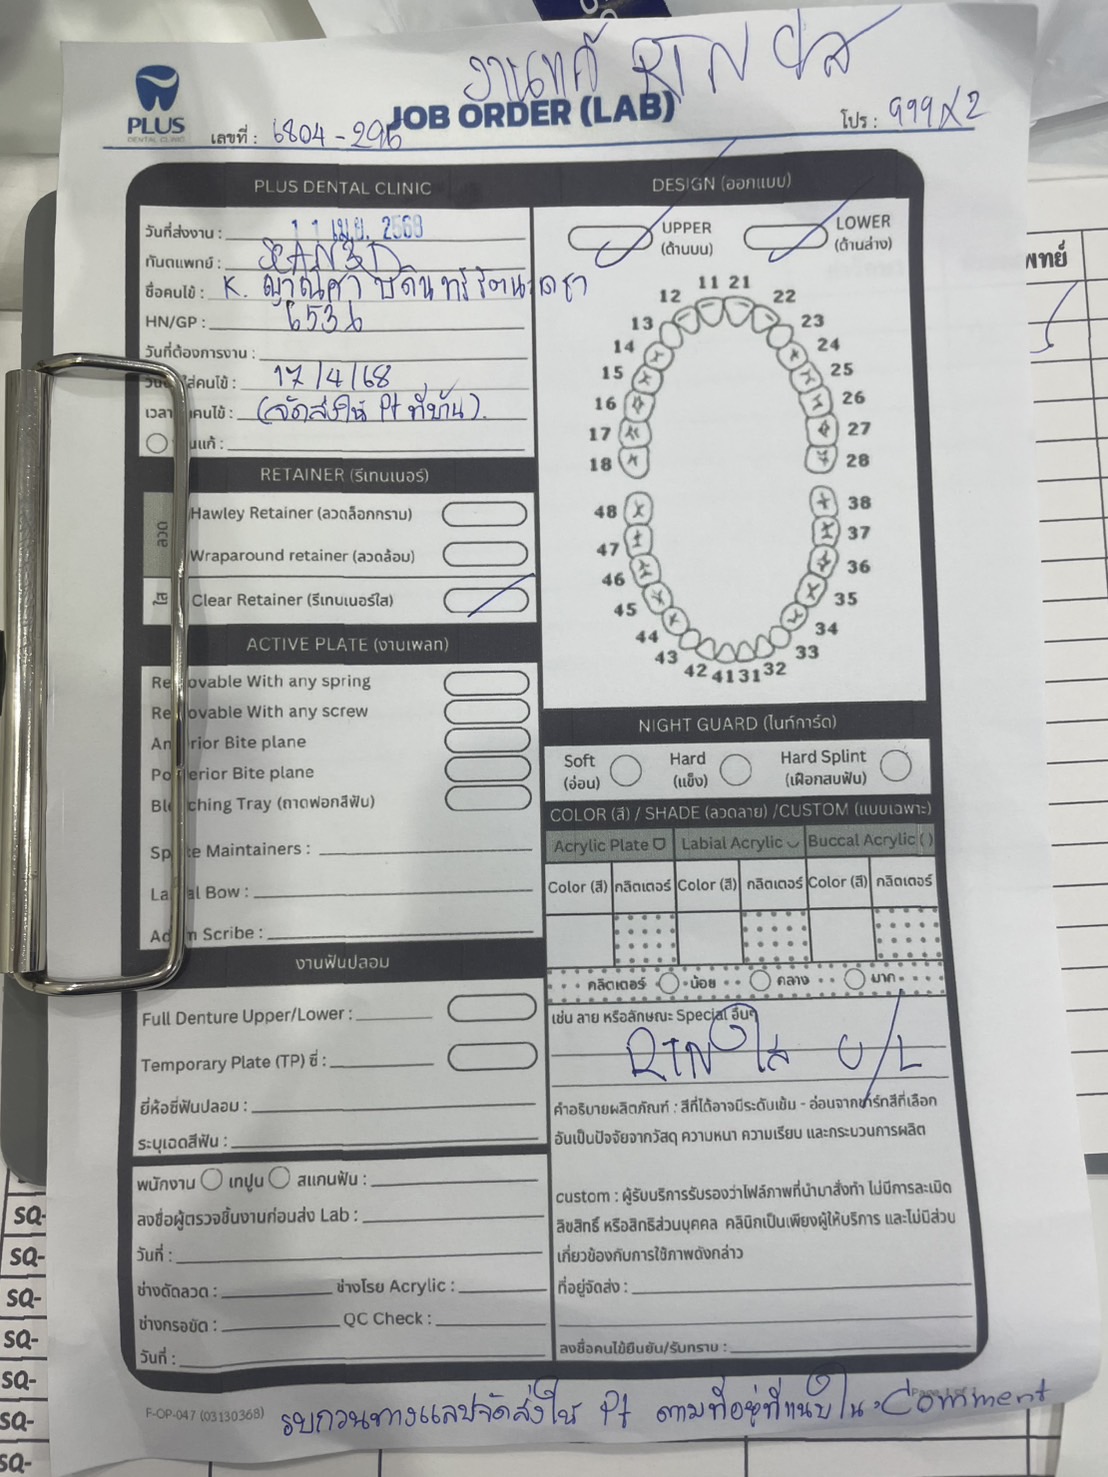 งานแก้ RTN ใส
PLUS
DENTAL CLINIC
JOB ORDER (LAB)
เลขที่ : 6804-296
โปร : 999x2
PLUS DENTAL CLINIC
วันที่ส่งงาน : 11 เม.ย. 2568
ทันตแพทย์ :
ชื่อคนไข้ : K. ญาณิศา
HN/GP : 6536
วันที่ต้องการงาน :
ใส่คนไข้ : 17/4/68
เวลา คนไข้ : (จัดส่งให้ Pt ที่บ้าน).
นแก้ :
RETAINER (รีเทนเนอร์)
ลวด
Hawley Retainer (ลวดล็อกกราม)
Wraparound retainer (ลวดล้อม)
ใส
Clear Retainer (รีเทนเนอร์ใส)
ACTIVE PLATE (งานเพลท)
Re ovable With any spring
Re ovable With any screw
An rior Bite plane
Po erior Bite plane
Ble ching Tray (ถาดฟอกสีฟัน)
Sp e Maintainers :
La al Bow :
Ad m Scribe :
งานฟันปลอม
Full Denture Upper/Lower :
Temporary Plate (TP) ซี่ :
ยี่ห้อซี่ฟันปลอม :
ระบุเฉดสีฟัน :
พนักงาน เทปูน สแกนฟัน :
ลงชื่อผู้ตรวจชิ้นงานก่อนส่ง Lab :
วันที่ :
ช่างดัดลวด : ช่างโรย Acrylic :
ช่างกรอขัด : QC Check :
วันที่ :
DESIGN (ออกแบบ)
UPPER
(ด้านบน)
LOWER
(ด้านล่าง)
11 21
12 22
13 23
14 24
15 25
16 26
17 27
18 28
48 38
47 37
46 36
45 35
44 34
43 33
42 41 31 32
NIGHT GUARD (ไนท์การ์ด)
Soft
(อ่อน)
Hard
(แข็ง)
Hard Splint
(เฝือกสบฟัน)
COLOR (สี) / SHADE (ลวดลาย) /CUSTOM (แบบเฉพาะ)
Acrylic Plate Labial Acrylic Buccal Acrylic ( )
Color (สี) กลิตเตอร์ Color (สี) กลิตเตอร์ Color (สี) กลิตเตอร์
กลิตเตอร์ น้อย กลาง มาก
เช่น ลาย หรือลักษณะ Special อื่นๆ
RTN ใส U/L
คำอธิบายผลิตภัณฑ์ : สีที่ได้อาจมีระดับเข้ม - อ่อนจากชาร์ทสีที่เลือก
อันเป็นปัจจัยจากวัสดุ ความหนา ความเรียบ และกระบวนการผลิต
custom : ผู้รับบริการรับรองว่าไฟล์ภาพที่นำมาสั่งทำ ไม่มีการละเมิด
ลิขสิทธิ์ หรือสิทธิส่วนบุคคล คลินิกเป็นเพียงผู้ให้บริการ และไม่มีส่วน
เกี่ยวข้องกับการใช้ภาพดังกล่าว
ที่อยู่จัดส่ง :
ลงชื่อคนไข้ยืนยัน/รับทราบ :
F-OP-047 (03130368)
รบกวนทางแลปจัดส่งให้ Pt ตามที่อยู่ที่แนบใน Comment
พทย์
SQ-
SQ-
SQ-
SQ-
SQ-
SQ-
SQ-